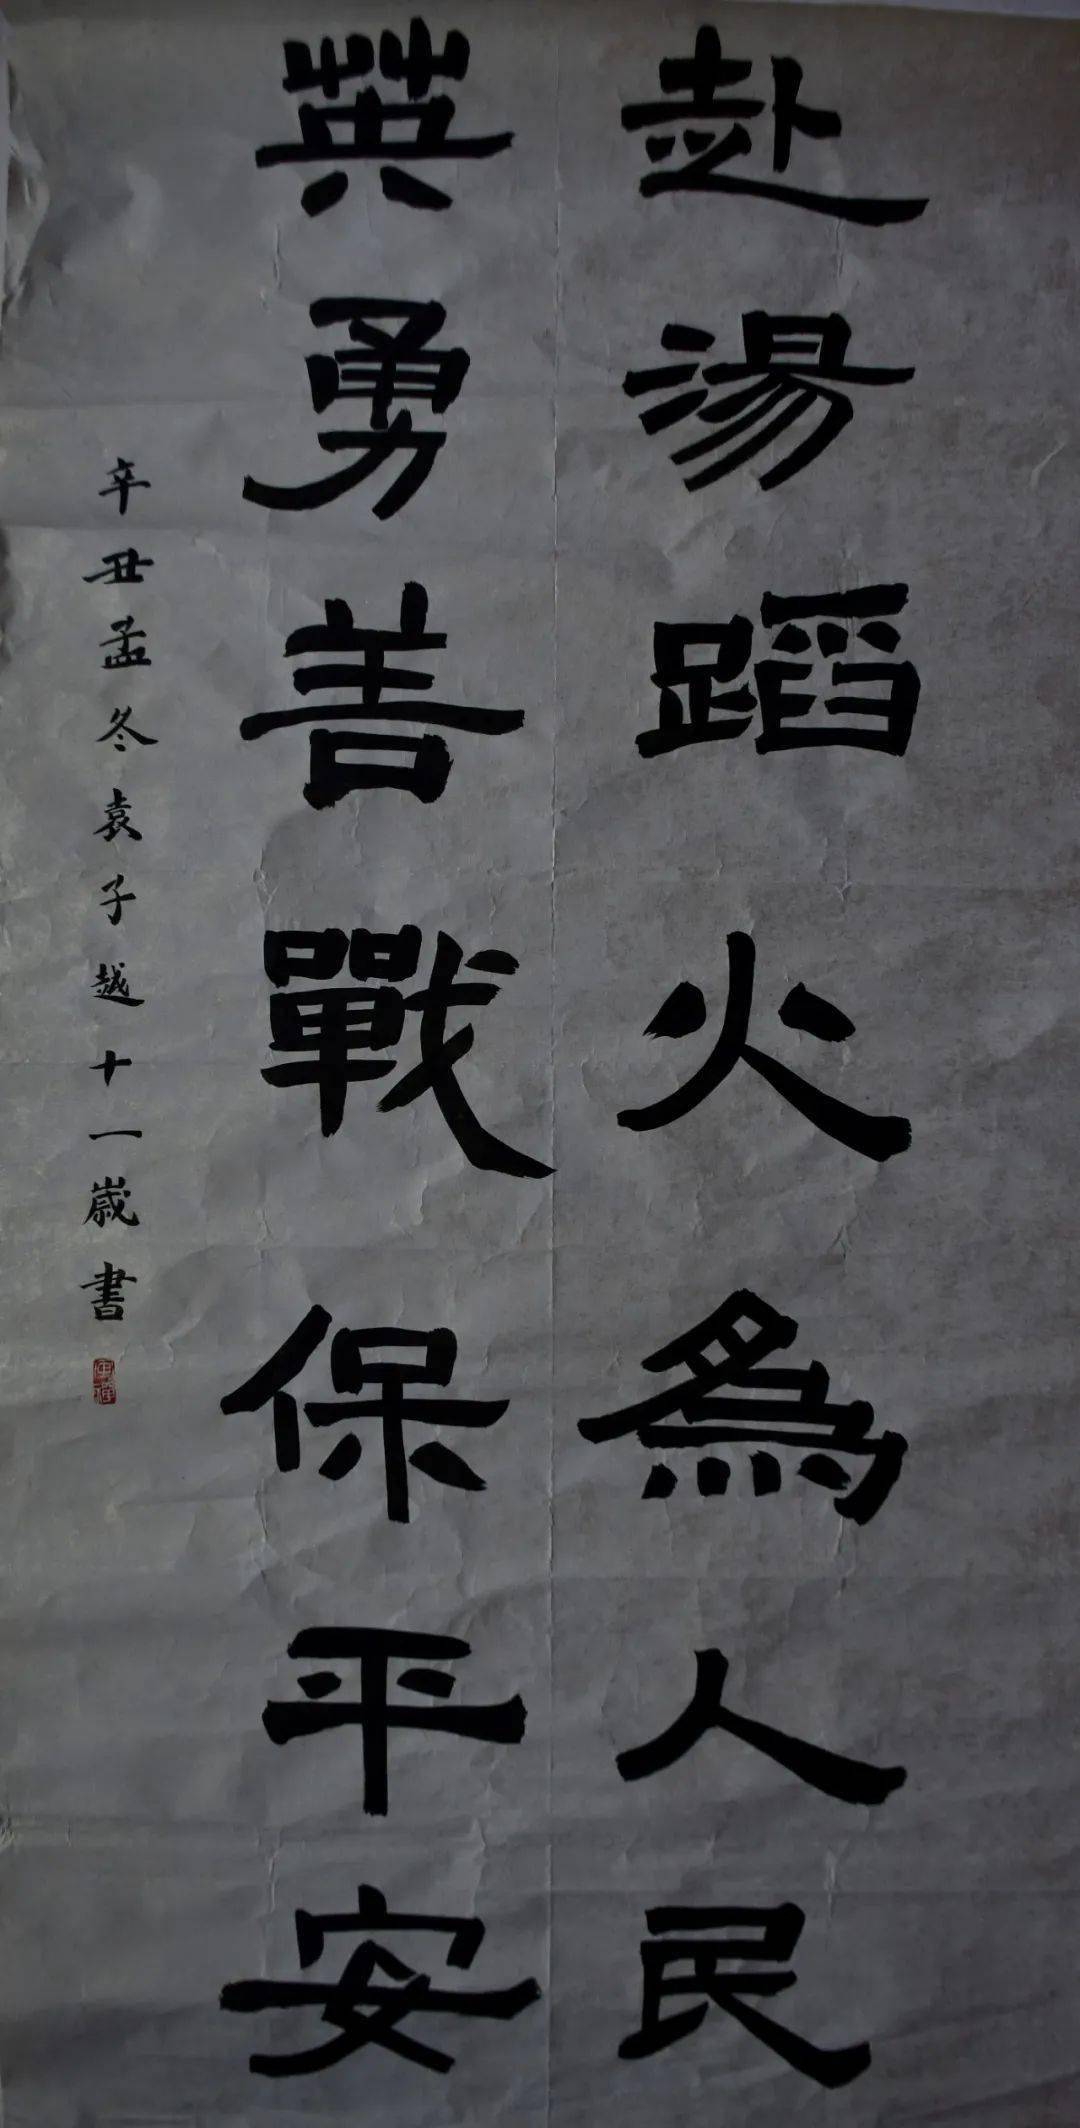 赴湯蹈火為人民
英勇善戰保平安
辛丑孟冬袁子越十一歲書